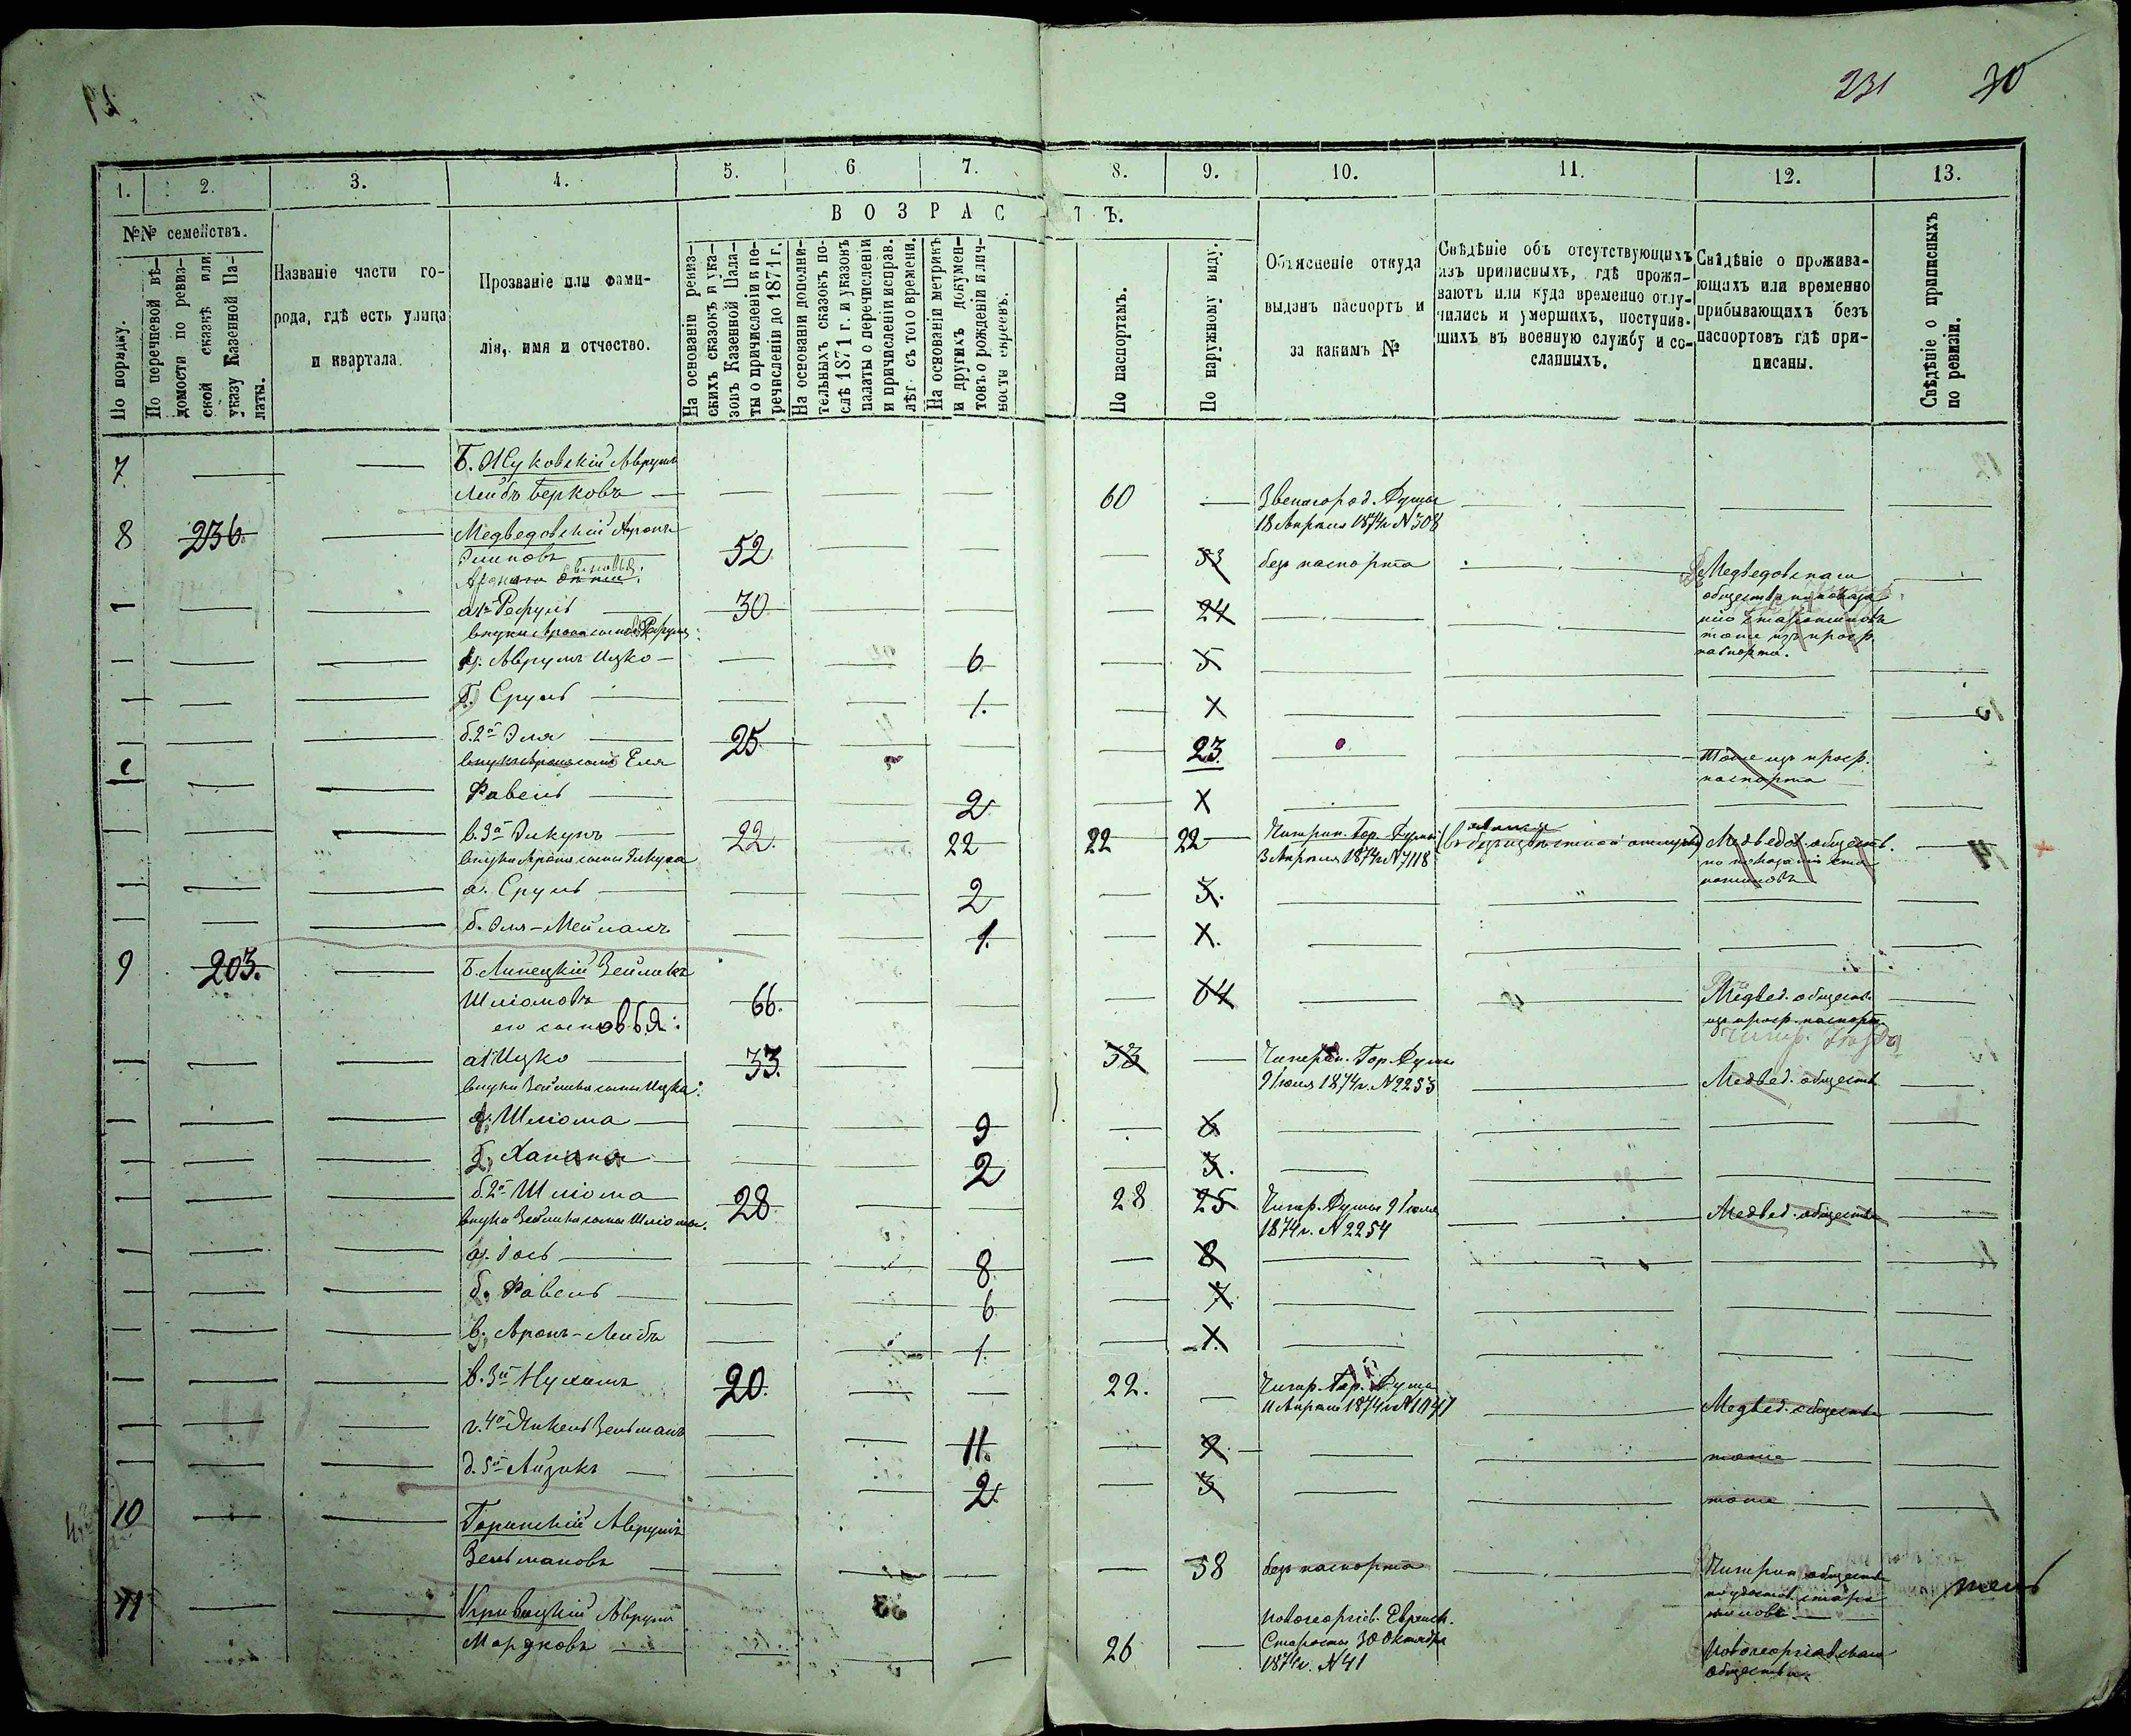 231 30
1. 2. 3. 4. 5. 6 7. 8. 9. 10. 11. 12. 13.
№№ семействъ.
По порядку.
По перечневой вѣ-
домости по ревиз-
ской сказкѣ или
указу Казенной Па-
латы.
Названіе части го-
рода, гдѣ есть улица
и квартала.
Прозваніе или фами-
лія, имя и отчество.
ВОЗРАСТЪ.
На основаніи ревиз-
скихъ сказокъ и ука-
зовъ Казенной Пала-
ты о причисленіи и пе-
речисленіи до 1871 г.
На основаніи дополни-
тельныхъ сказокъ по-
слѣ 1871 г. и указовъ
палаты о перечисленіи
и причисленіи исправ.
лѣт. съ того времени.
На основаніи метрикъ
и другихъ докумен-
товъ о рожденіи и лич-
ности евреевъ.
По паспортамъ.
По наружному виду.
Объясненіе откуда
выданъ паспортъ и
за какимъ №
Свѣдѣніе объ отсутствующихъ
изъ приписныхъ, гдѣ прожи-
ваютъ или куда временно отлу-
чились и умершихъ, поступив-
шихъ въ военную службу и со-
сланныхъ.
Свѣдѣніе о прожива-
ющихъ или временно
прибывающихъ безъ
паспортовъ гдѣ при-
писаны.
Свѣдѣніе о приписныхъ
по ревизіи.
7 Б. Жуковскій Аврумъ
Лейбъ Берковъ 60 Звенигород. Думы
18 Апрѣля 1874 г № 308
8 236. Медведовскій Аронъ
52 53 безъ паспорта
Медведовскаго
общества
а 1й Рефулъ 30 24
внуки Арона сына Рефула:
а. Аврумъ Ицко 6 5
б. Сруль 1. X
б. 2й Эля 25 23
Тоже изъ проср.
паспорта
внуки Арона сына Еля
Фавель 2 X
в. 3й Элкунъ 22. 22 22 22 Чигирин. Гор. Думы
3 Апрѣля 1874 г № 7118
Медведов. обществ.
внуки Арона сына Элкуна
а. Сруль 2 3.
б. Эля-Мейлахъ 1. X.
9 203. Б. Липецкій Зейликъ
Шліомовъ 66. 64
Медвед. обществ.
изъ проср. паспорта
его сыновья:
а 1й Ицко 33. 33 Чигирин. Гор. Думы
9 Іюля 1874 г. № 2253
Медвед. обществ
внуки Зейлика сына Ицка:
а. Шліома 9 6
б. 2 3.
б. 2й Шліома 28 28 25 Чигир. Думы 9 Іюля
1874 г. № 2254
Медвед. общества
внуки Зейлика сына Шліомы.
а. Іось 8 8
б. Фавель 6 7.
в. Аронъ-Лейбъ 1. 1.
в. 3й Нухимъ 20. 22. Чигир. Гор. Думы
11 Апрѣля 1874 г № 1047
Медвед. общества
г. 4й Янкель Зельманъ 11. 9. тоже
д. 5й Айзикъ 2 3 тоже
10 Горинскій Аврумъ
Зельмановъ 58 безъ паспорта
Чигирин. общества
11 Кривицкій Аврумъ
Мордковъ 26 Новогеоргіев. Еврейск.
Старосты 30 Октября
1874 г. № 41
Новогеоргіевскаго
общества